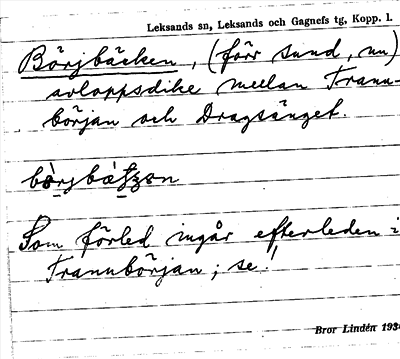 Leksands sn, Leksands och Gagnefs tg, Kopp. l.
Börjbäcken, (förr sund, nu)
avloppsdike mellan Trann-
början och Dragsänget.
Som förled ingår efterleden i
Trannbörjan; se!
Bror Lindén 193